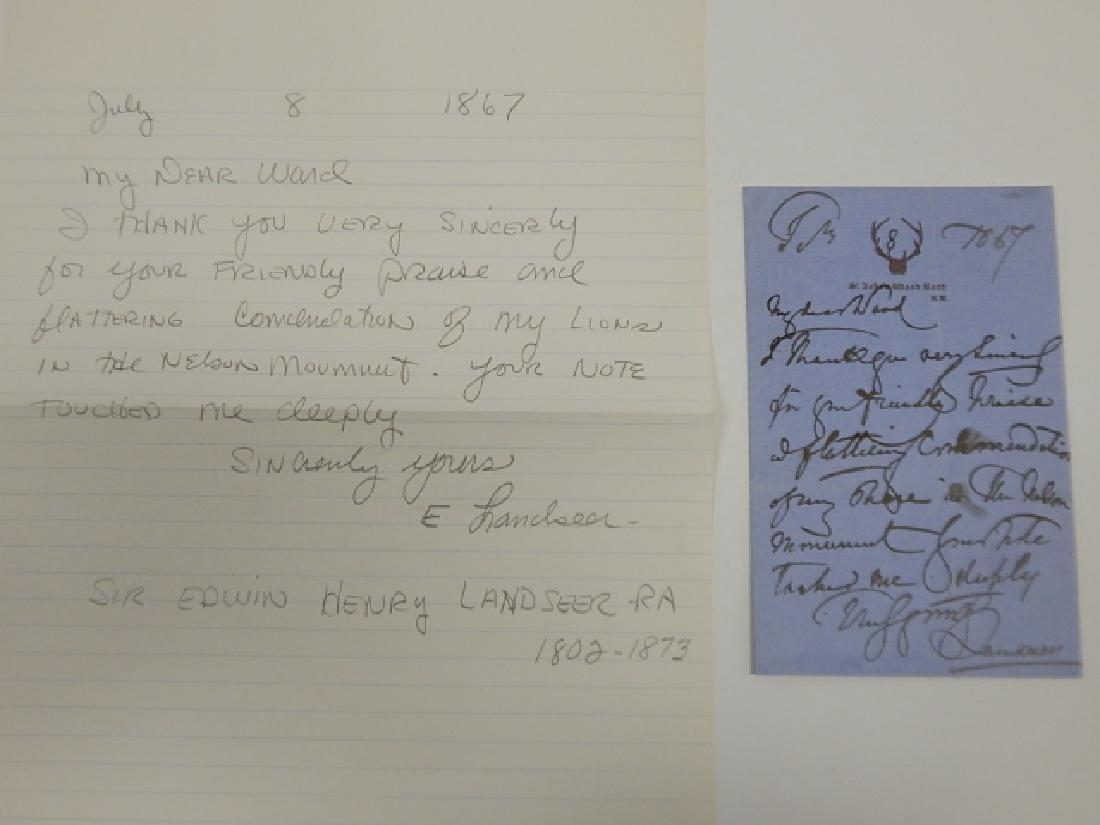 July 8 1867
My DEAR Ward
I THANK you VERY SINCERLY
for your FRIENDLY Praise and
flATTERING Comendation of my LIONS
IN the NELSON Moumunt. Your NOTE
TOUCHED me deeply
SINcerely yours
E Landseer-
SIR EDWIN HENRY LANDSEER-RA
1802-1873
8 1867
St John's Wood Road
N.W.
My dear Ward
I thank you very sincerely
for your friendly Praise
& flattering Commendation
of my in the Nelson
Monument Your Note
Touched me deeply